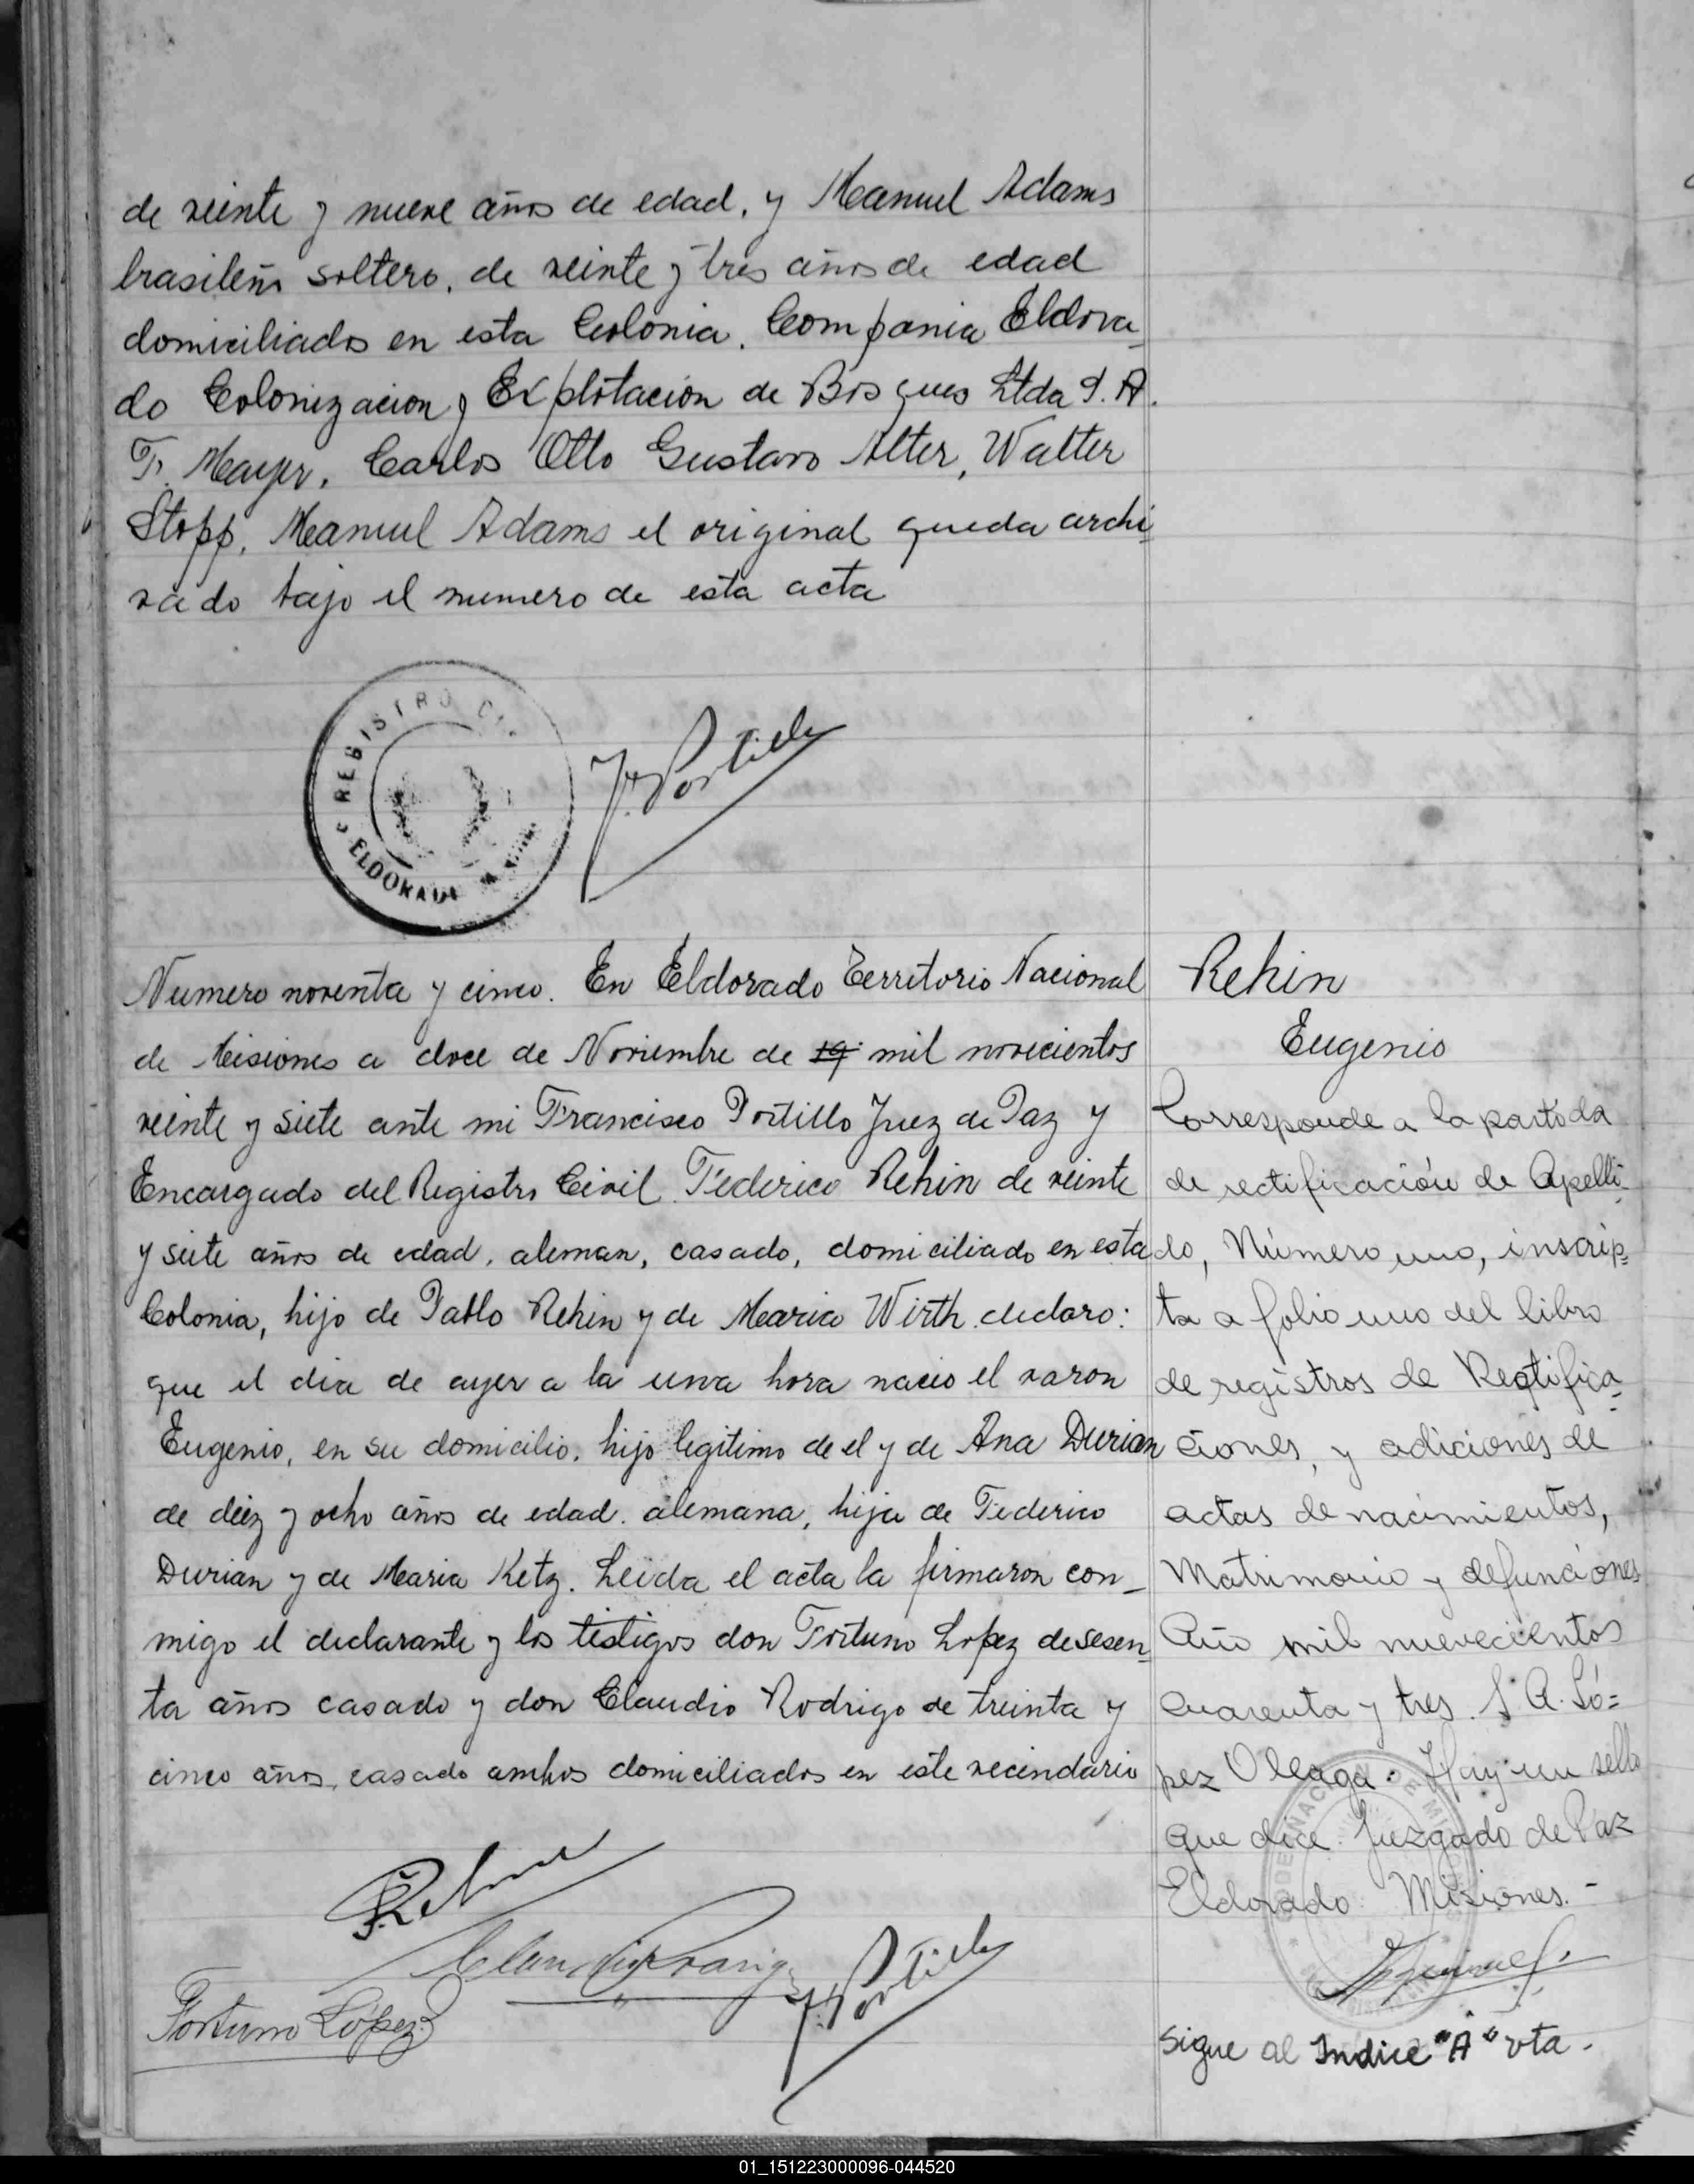 de veinte y nueve años de edad, y Manuel Adams
brasileño soltero, de veinte y tres años de edad
domiciliados en esta Colonia. Compania Eldora
do Colonizacion y Explotacion de Bosques Ltda S. A.
F. Mayer, Carlos Otto Gustavo Alter, Walter
Stopp, Manuel Adams el original queda archi
vado bajo el numero de esta acta
REGISTRO CI
ELDORADO
F. Portillo
Numero noventa y cinco. En Eldorado Territorio Nacional
de Misiones a doce de Noviembre de 19 mil novecientos
veinte y siete ante mi Francisco Portillo Juez de Paz y
Encargado del Registro Civil Federico Rehin de veinte
y siete años de edad, aleman, casado, domiciliado en esta
Colonia, hijo de Pablo Rehin y de Maria Wirth declaro:
que el dia de ayer a la una hora nacio el varon
Eugenio, en su domicilio, hijo legitimo de el y de Ana Durian
de diez y ocho años de edad. alemana, hija de Federico
Durian y de Maria Ketz. Leida el acta la firmaron con-
migo el declarante y los testigos don Fortuno Lopez de sesen
ta años casado y don Claudio Rodrigo de treinta y
cinco años, casado ambos domiciliados en este vecindario
Fortuno López
F. Portillo
Rehin
Eugenio
Corresponde a la partida
de rectificación de Apelli-
do, Número uno, inscrip=
ta a folio uno del libro
de registros de Rectifica
ciones, y adiciones de
actas de nacimientos,
Matrimonio y defunciones
Año mil nuevecientos
cuarenta y tres. S. A. Ló=
pez Oleaga. Hay un sello
que dice. Juzgado de Paz
Eldorado Misiones. -
Sigue al Indice "A" vta.
01_151223000096-044520